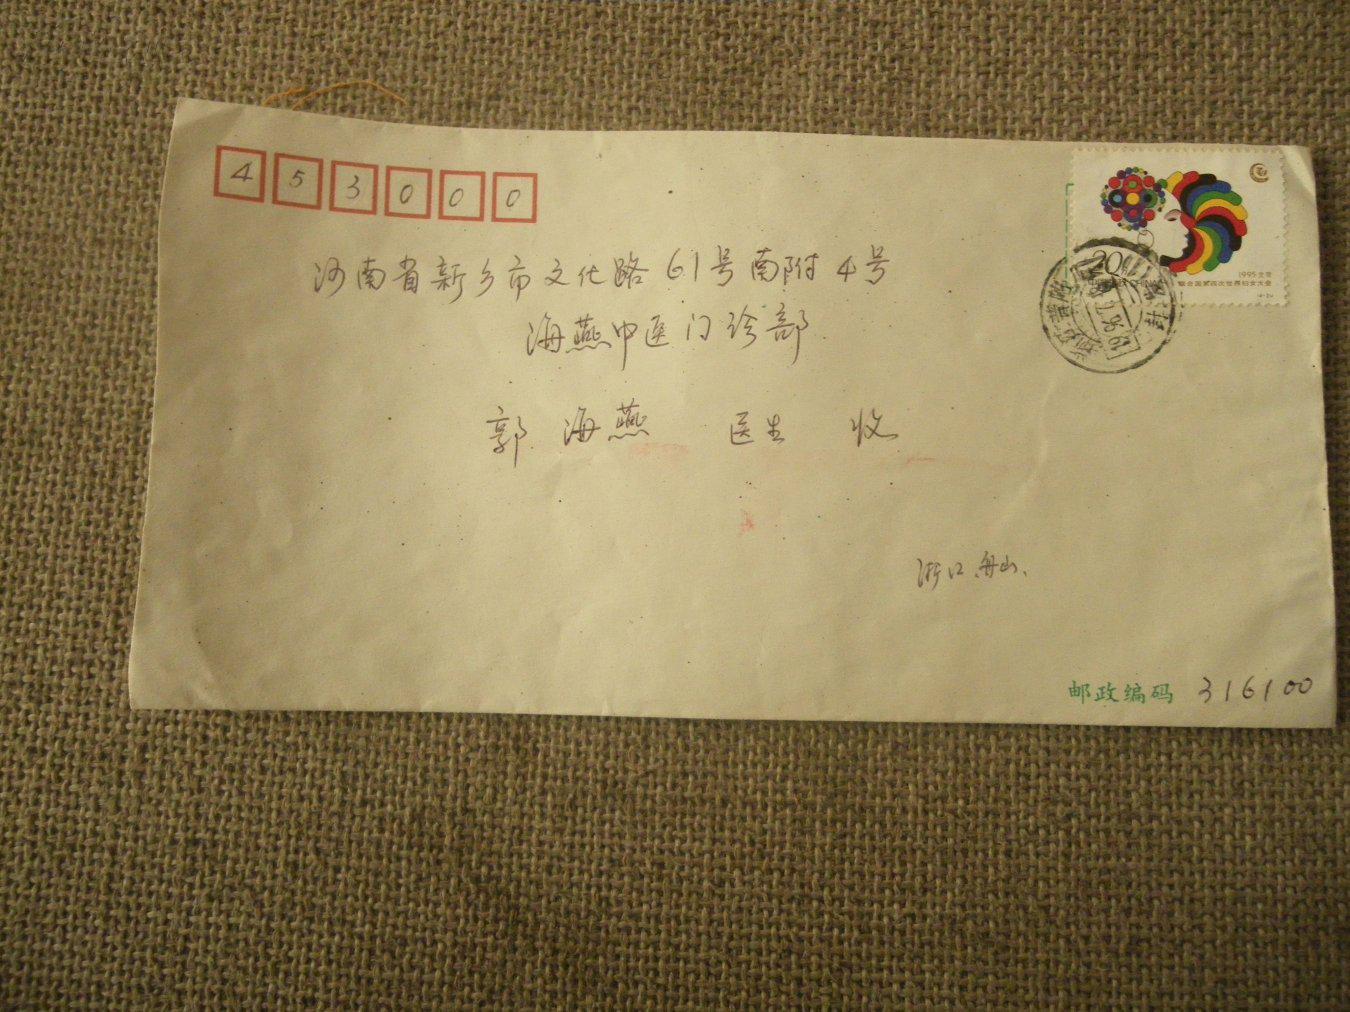 453000
河南省新乡市文化路61号南附4号
海燕中医门诊部
郭海燕 医生 收
浙江舟山.
邮政编码 316100
20
1995北京
联合国第四次世界妇女大会